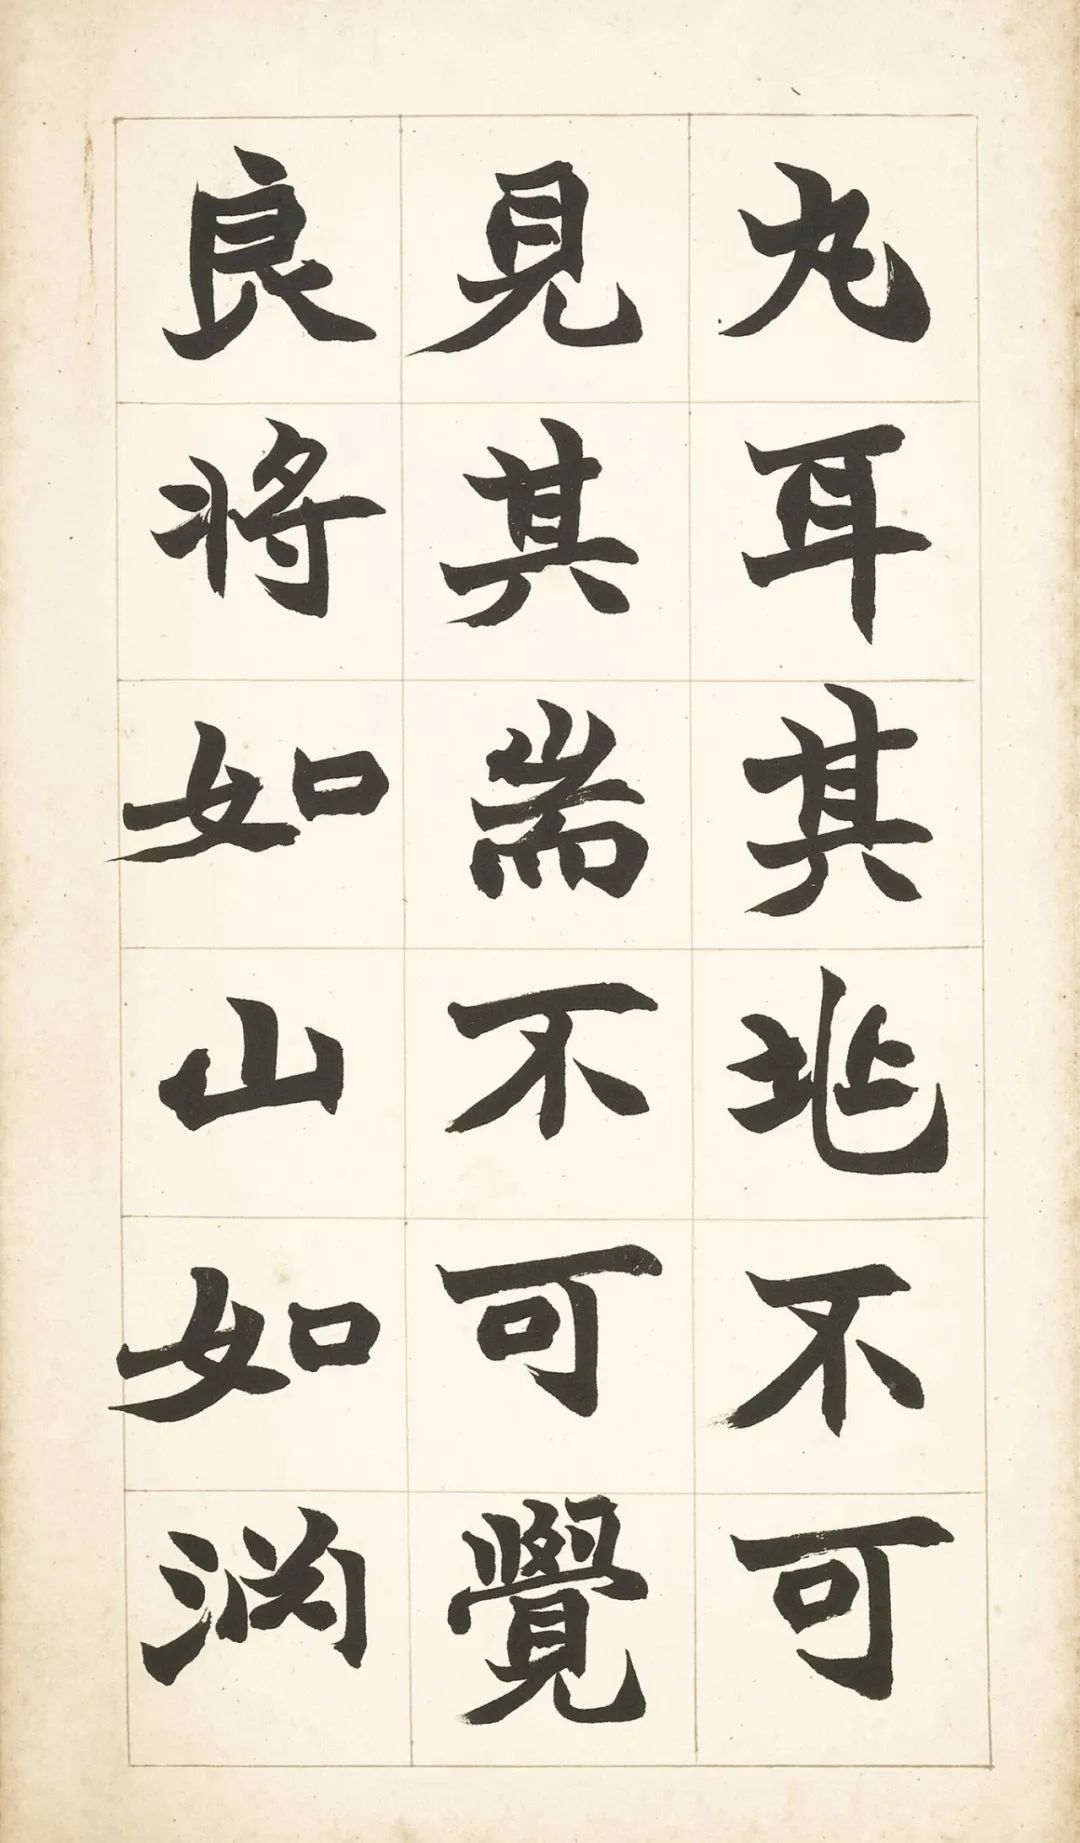 丸耳其兆不可
見其耑不可覺
良將如山如渕